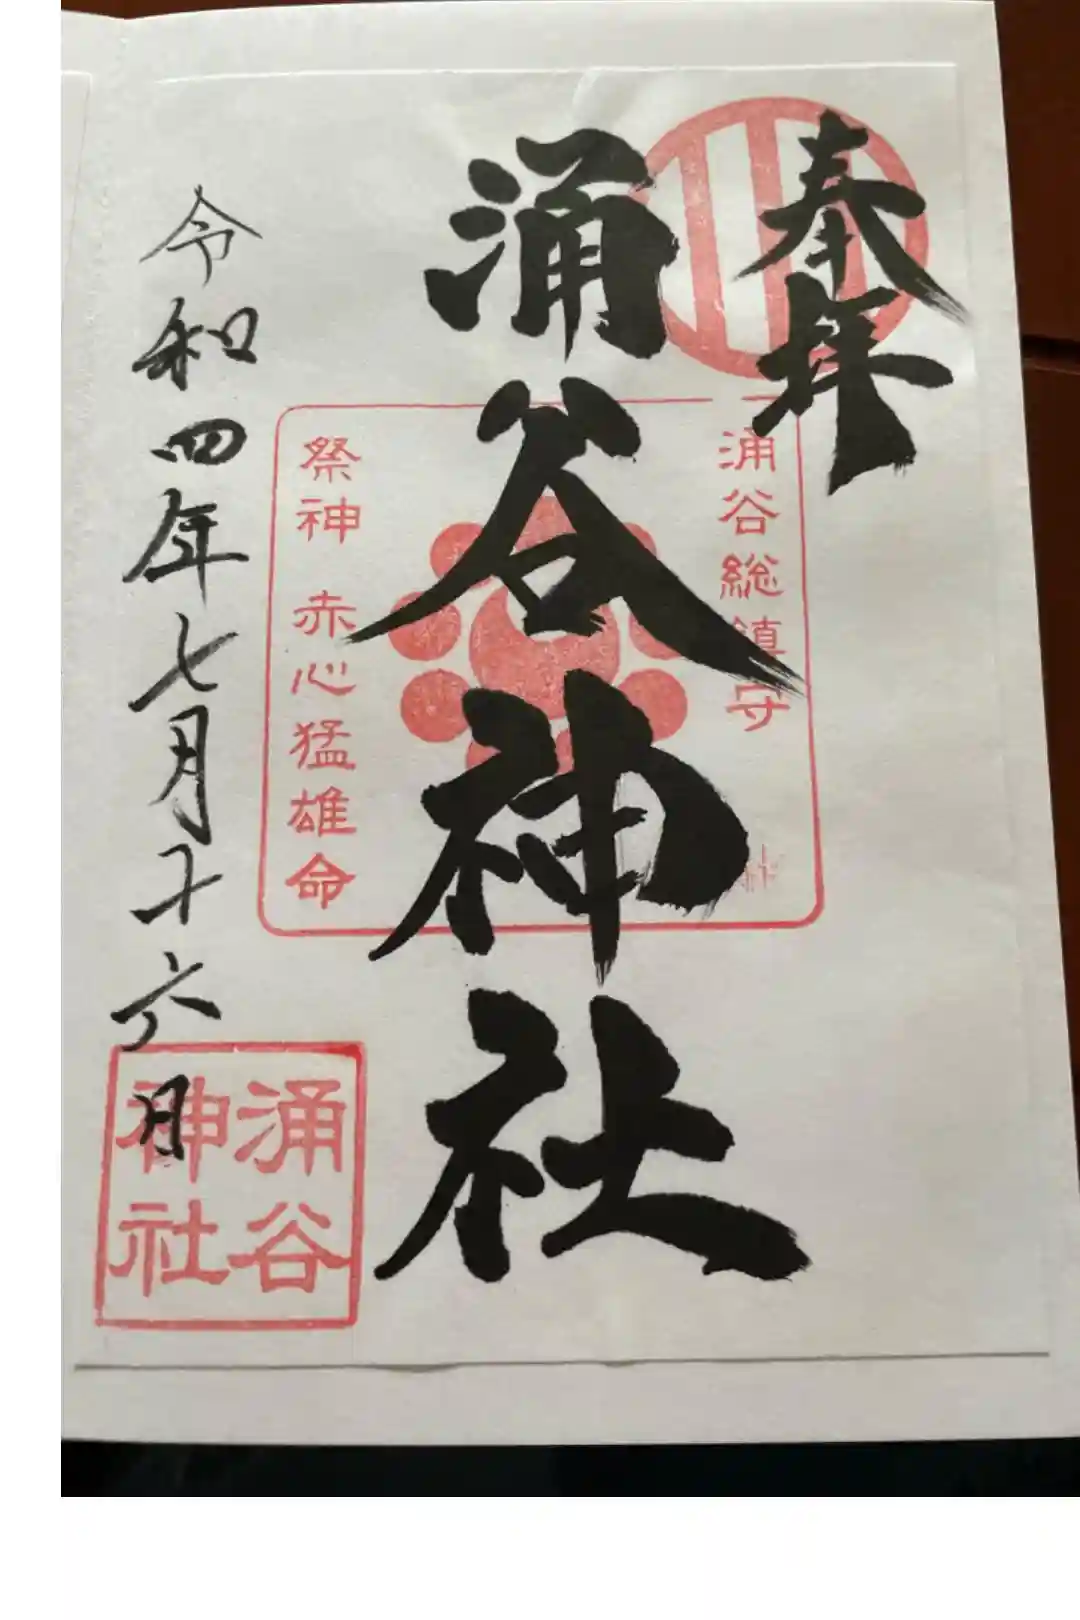 奉拝
涌谷総鎮守
涌谷神社
祭神 赤心猛雄命
令和四年七月十六日
涌谷
神社